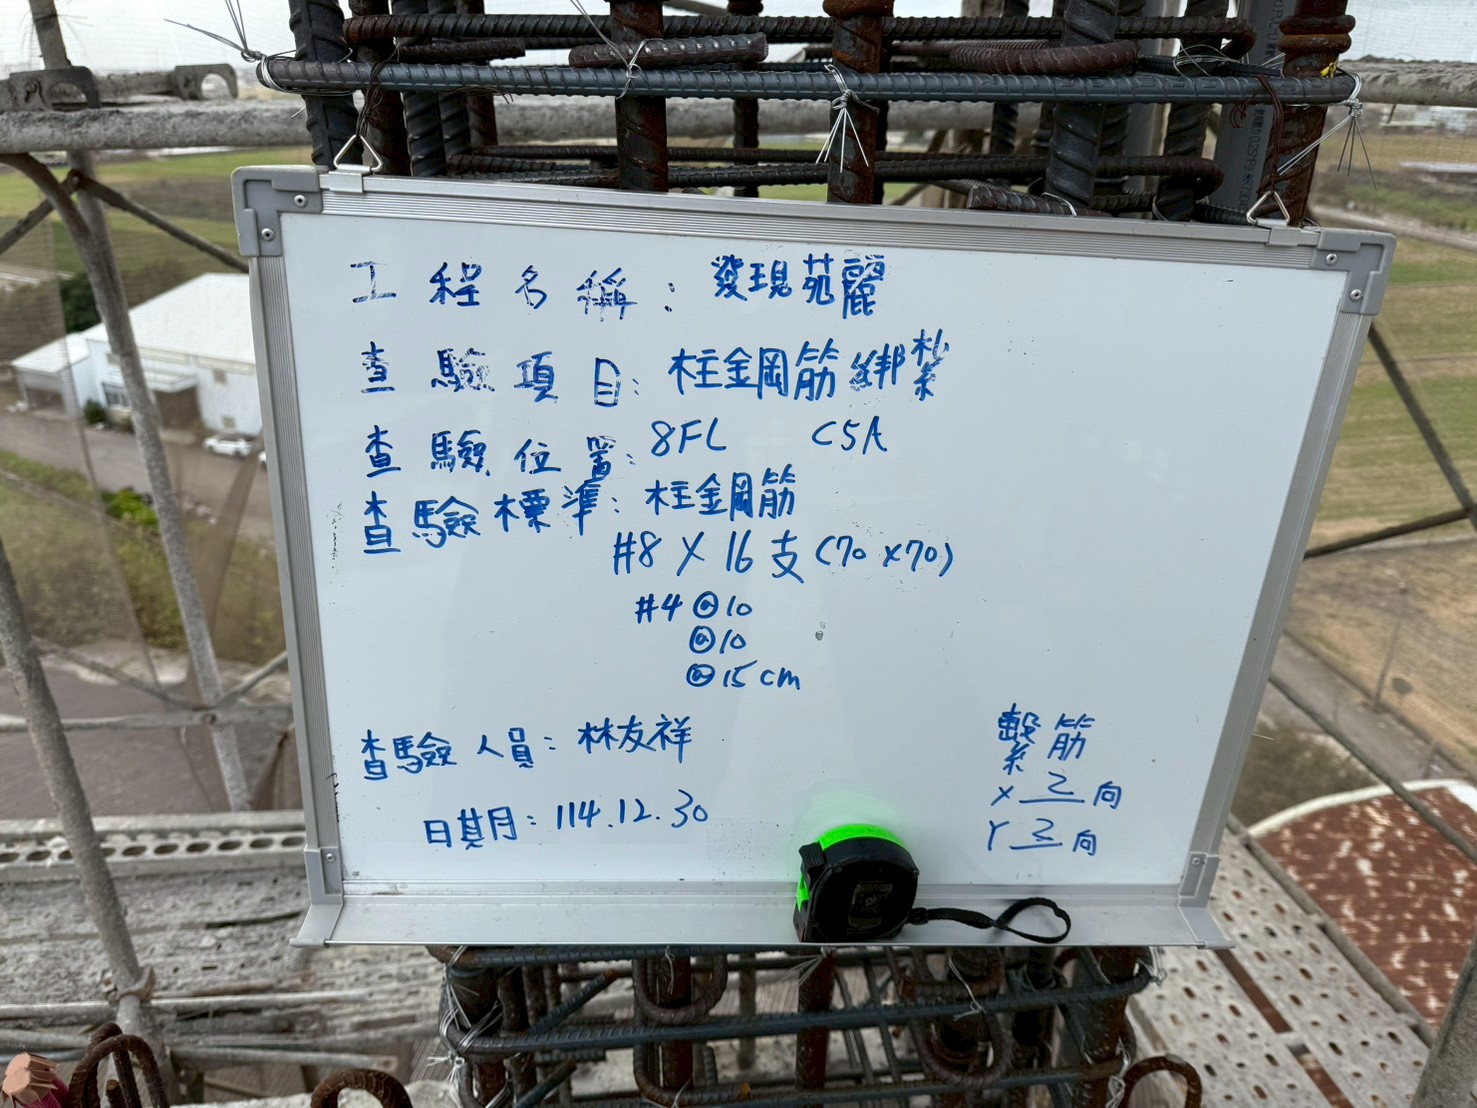 工程名稱：發現苑麗
查驗項目：柱鋼筋綁紮
查驗位置：8FL C5A
查驗標準：柱鋼筋
#8 X 16支 (70 x70)
#4 @10
@10
@15cm
查驗人員：林友祥
日期：114.12.30
繫筋
X 2 向
Y 2 向